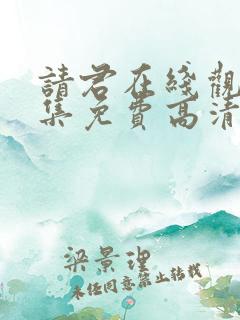 請君在綫觀
集免費高清
梁景理
未经同意禁止转载